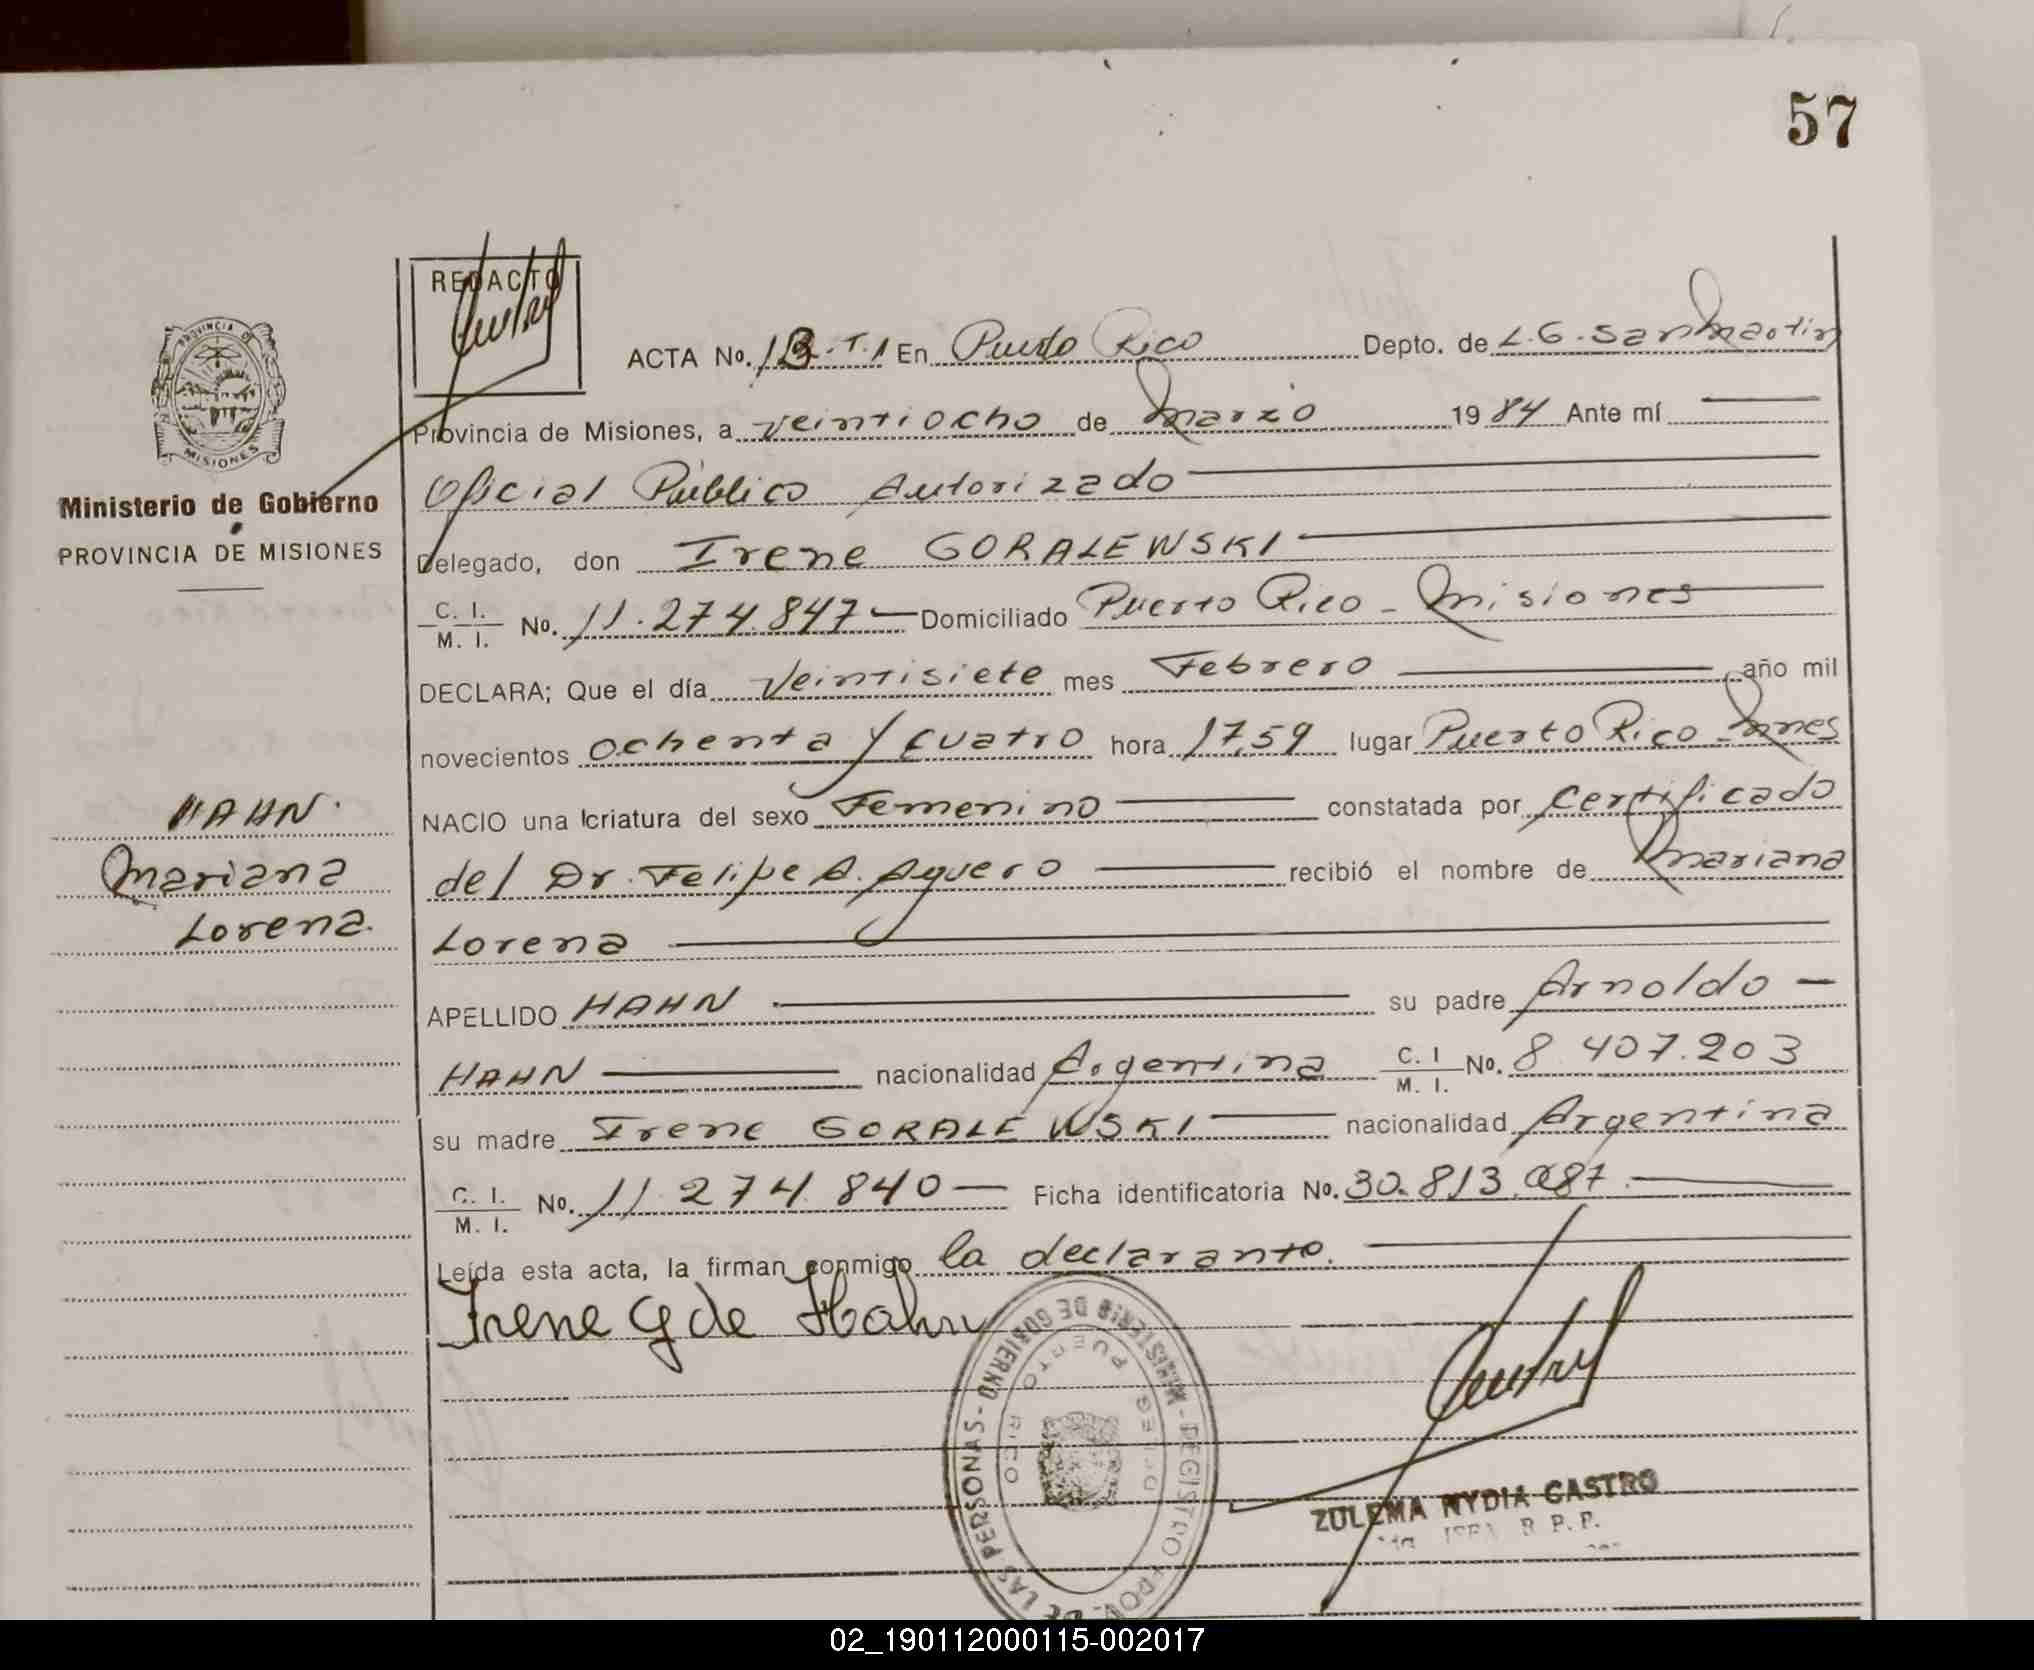 57
REDACTO
ACTA No. En Puerto Rico Depto. de L.G. San Martin
Provincia de Misiones, a veintiocho de Marzo 1984 Ante mí
Oficial Público Autorizado
Delegado, don Irene GORALEWSKI
C. I. M. I. No. 11.274.847 Domiciliado Puerto Rico - Misiones
DECLARA; Que el día veintisiete mes Febrero año mil
novecientos ochenta y cuatro hora 17,59 lugar Puerto Rico Mnes
NACIO una criatura del sexo Femenino constatada por certificado
del Dr. Felipe A. Aguero recibió el nombre de Mariana
Lorena
APELLIDO HAHN su padre Arnoldo
HAHN nacionalidad Argentina C. I M. I. No. 8.407.203
su madre Irene GORALEWSKI nacionalidad Argentina
C. I. M. I. No. 11.274.840 Ficha identificatoria No. 30.813.087.
Leída esta acta, la firman conmigo la declarante.
Irene G de Hahn
PROVINCIA DE MISIONES
Ministerio de Gobierno
PROVINCIA DE MISIONES
HAHN
Mariana
Lorena.
MINISTERIO DE GOBIERNO - REGISTRO PROV. DE LAS PERSONAS
PUERTO RICO
ZULEMA NYDIA CASTRO
R.P.P.
02_190112000115-002017